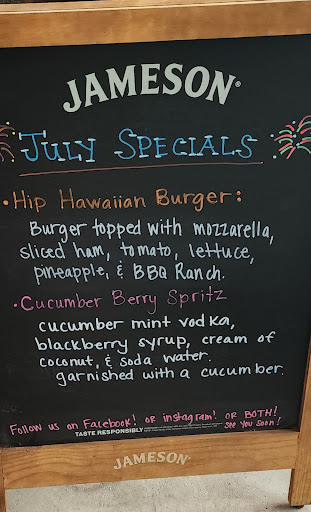 JAMESON®
July Specials
• Hip Hawaiian Burger:
Burger topped with mozzarella,
sliced ham, tomato, lettuce,
pineapple, & BBQ Ranch.
• Cucumber Berry Spritz
cucumber mint vodka,
blackberry syrup, cream of
coconut, & soda water.
garnished with a cucumber.
Follow us on Facebook! or instagram! or BOTH!
see you soon!
TASTE RESPONSIBLY
JAMESON®